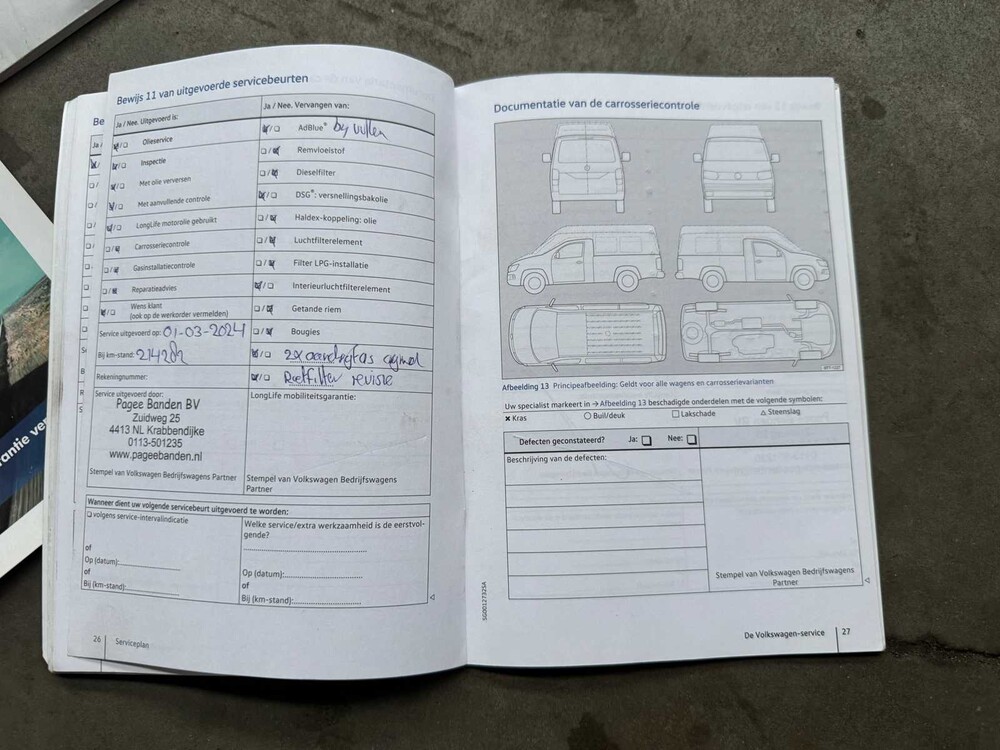 Bewijs 11 van uitgevoerde servicebeurten
Ja / Nee. Uitgevoerd is:
Olieservice
Inspectie
Met olie verversen
Met aanvullende controle
LongLife motorolie gebruikt
Carrosseriecontrole
Gasinstallatiecontrole
Reparatieadvies
Wens klant
(ook op de werkorder vermelden)
Service uitgevoerd op: 01-03-2024
Bij km-stand: 214282
Rekeningnummer:
Service uitgevoerd door:
Pagee Banden BV
Zuidweg 25
4413 NL Krabbendijke
0113-501235
www.pageebanden.nl
Stempel van Volkswagen Bedrijfswagens Partner
Ja / Nee. Vervangen van:
AdBlue® bij vullen
Remvloeistof
Dieselfilter
DSG®: versnellingsbakolie
Haldex-koppeling: olie
Luchtfilterelement
Filter LPG-installatie
Interieurluchtfilterelement
Getande riem
Bougies
2x aandrijfas
Roetfilter revisie
LongLife mobiliteitsgarantie:
Stempel van Volkswagen Bedrijfswagens
Partner
Wanneer dient uw volgende servicebeurt uitgevoerd te worden:
volgens service-intervalindicatie
of
Op (datum):
of
Bij (km-stand):
Welke service/extra werkzaamheid is de eerstvol-
gende?
Op (datum):
of
Bij (km-stand):
26 Serviceplan
Documentatie van de carrosseriecontrole
Afbeelding 13 Principeafbeelding: Geldt voor alle wagens en carrosserievarianten
Uw specialist markeert in → Afbeelding 13 beschadigde onderdelen met de volgende symbolen:
× Kras ○ Buil/deuk □ Lakschade △ Steenslag
Defecten geconstateerd? Ja: Nee:
Beschrijving van de defecten:
Stempel van Volkswagen Bedrijfswagens
Partner
SG0012732SA
De Volkswagen-service 27
antie ve